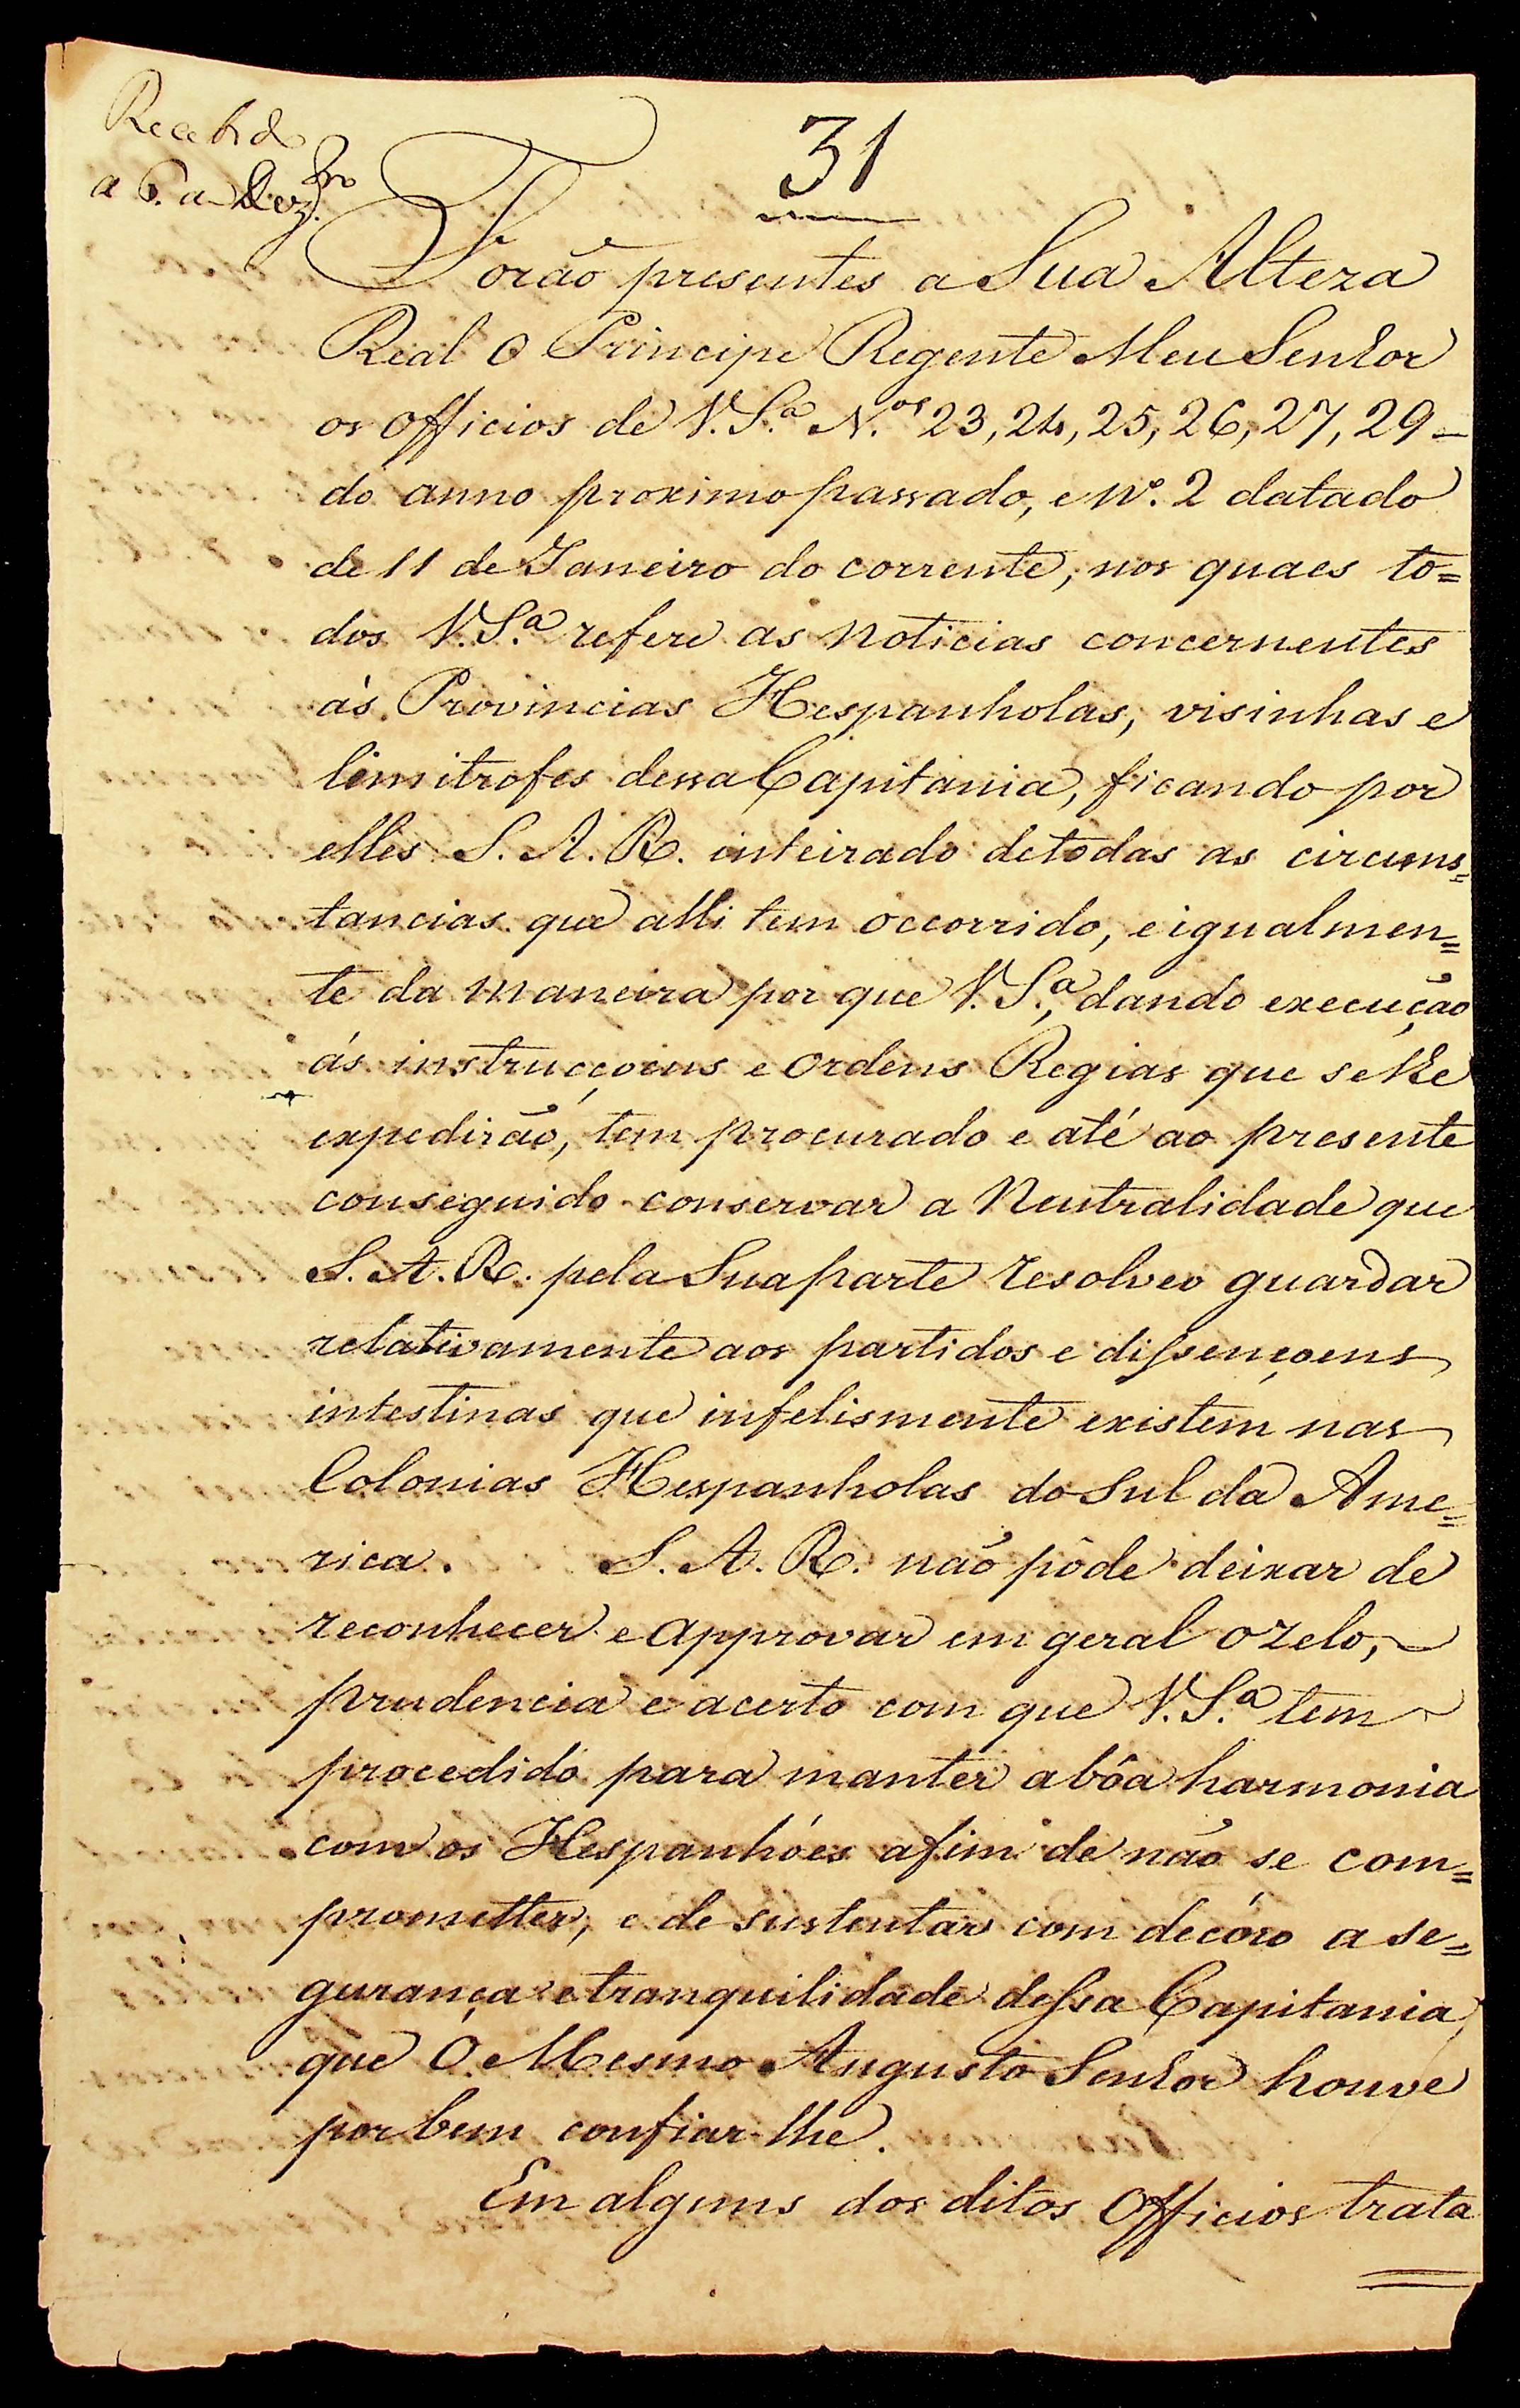 Recebido
a 6. a Dezbro.
31
Forão presentes a Sua Alteza
Real O Principe Regente Meu Senhor
os Officios de V. S.ª N.os 23, 24, 25, 26, 27, 29
do anno proximo passado, e Nº. 2 datado
de 11 de Janeiro do corrente, nos quaes to=
dos V. S.ª refere as noticias concernentes
ás Provincias Hespanholas, visinhas e
limitrofes dessa Capitania, ficando por
elles S. A. R. inteirado de todas as circums=
tancias que alli tem occorrido, e igualmen=
te da maneira por que V. S.ª, dando execução
ás instrucçoens e Ordens Regias que se lhe
expedirão, tem procurado e até ao presente
conseguido conservar a Neutralidade que
S. A. R. pela Sua parte resolveo guardar
relativamente aos partidos e dissençoens
intestinas que infelismente existem nas
Colonias Hespanholas do Sul da Ame=
rica. S. A. R. não pôde deixar de
reconhecer e approvar em geral o zelo,
prudencia e acerto com que V. S.ª tem
procedido para manter a bôa harmonia
com os Hespanhóes afim de não se com=
prometter, e de sustentar com decóro a se=
gurança e tranquilidade dessa Capitania
que O Mesmo Augusto Senhor houve
por bem confiar-lhe.
Em alguns dos ditos Officios trata